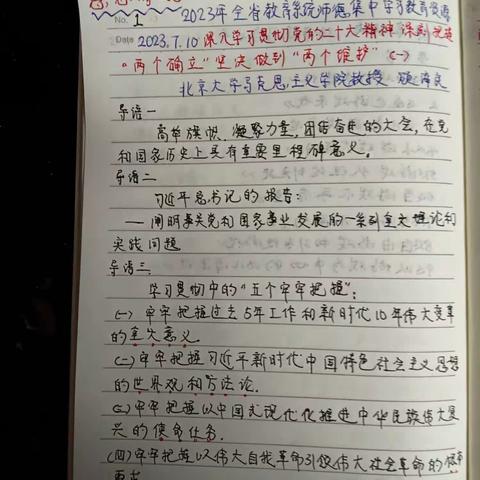 No. 1 2023年全省教育系统师德集中学习教育
Date 2023.7.10 深入学习贯彻党的二十大精神 深刻领悟
"两个确立"坚决做到"两个维护" (一)
北京大学马克思主义学院教授
导语一
高举旗帜、凝聚力量、团结奋进的大会,在党
和国家历史上具有重要里程碑意义。
导语二
习近平总书记的报告:
——阐明事关党和国家事业发展的一系列重大理论和
实践问题
导语三
学习贯彻中的"五个牢牢把握":
(一) 牢牢把握过去5年工作和新时代10年伟大变革
的重大意义.
(二) 牢牢把握习近平新时代中国特色社会主义思想
的世界观和方法论.
(三) 牢牢把握以中国式现代化推进中华民族伟大复
兴的使命任务.
(四) 牢牢把握以伟大自我革命引领伟大社会革命的
要求